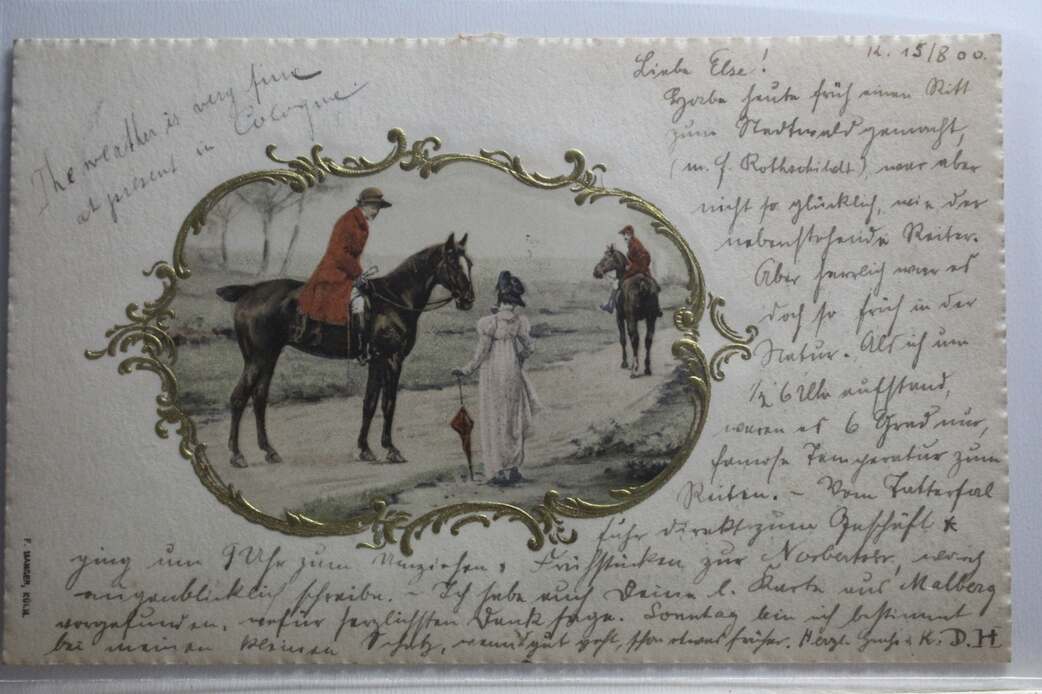 The weather is very fine
at present in Cologne.
K. 15/8 00.
Liebe Else!
Habe heute früh einen Ritt
zum Stadtwald gemacht,
(m. f. Rothschildt), war aber
nicht so glücklich, wie der
nebenstehende Reiter.
Aber herrlich war es
doch so früh in der
Natur. Als ich um
1/2 6 Uhr aufstand,
waren es 6 Grad nur,
famose Temperatur zum
Reiten. – Vom Tattersal
fuhr direkt zum Geschäft &
ging um 9 Uhr zum Umziehen & Frühstücken zur Norbertstr,
augenblicklich schreibe. – Ich habe auch Deine l. Karte aus Malberg
vorgefunden, wofür herzlichsten Dank sage. Sonntag bin ich bestimmt
bei meinem kleinen Schatz, wenns gut geht, schon etwas früher. Herzl. Gruß & K. D. H
F. MANGER, KÖLN.